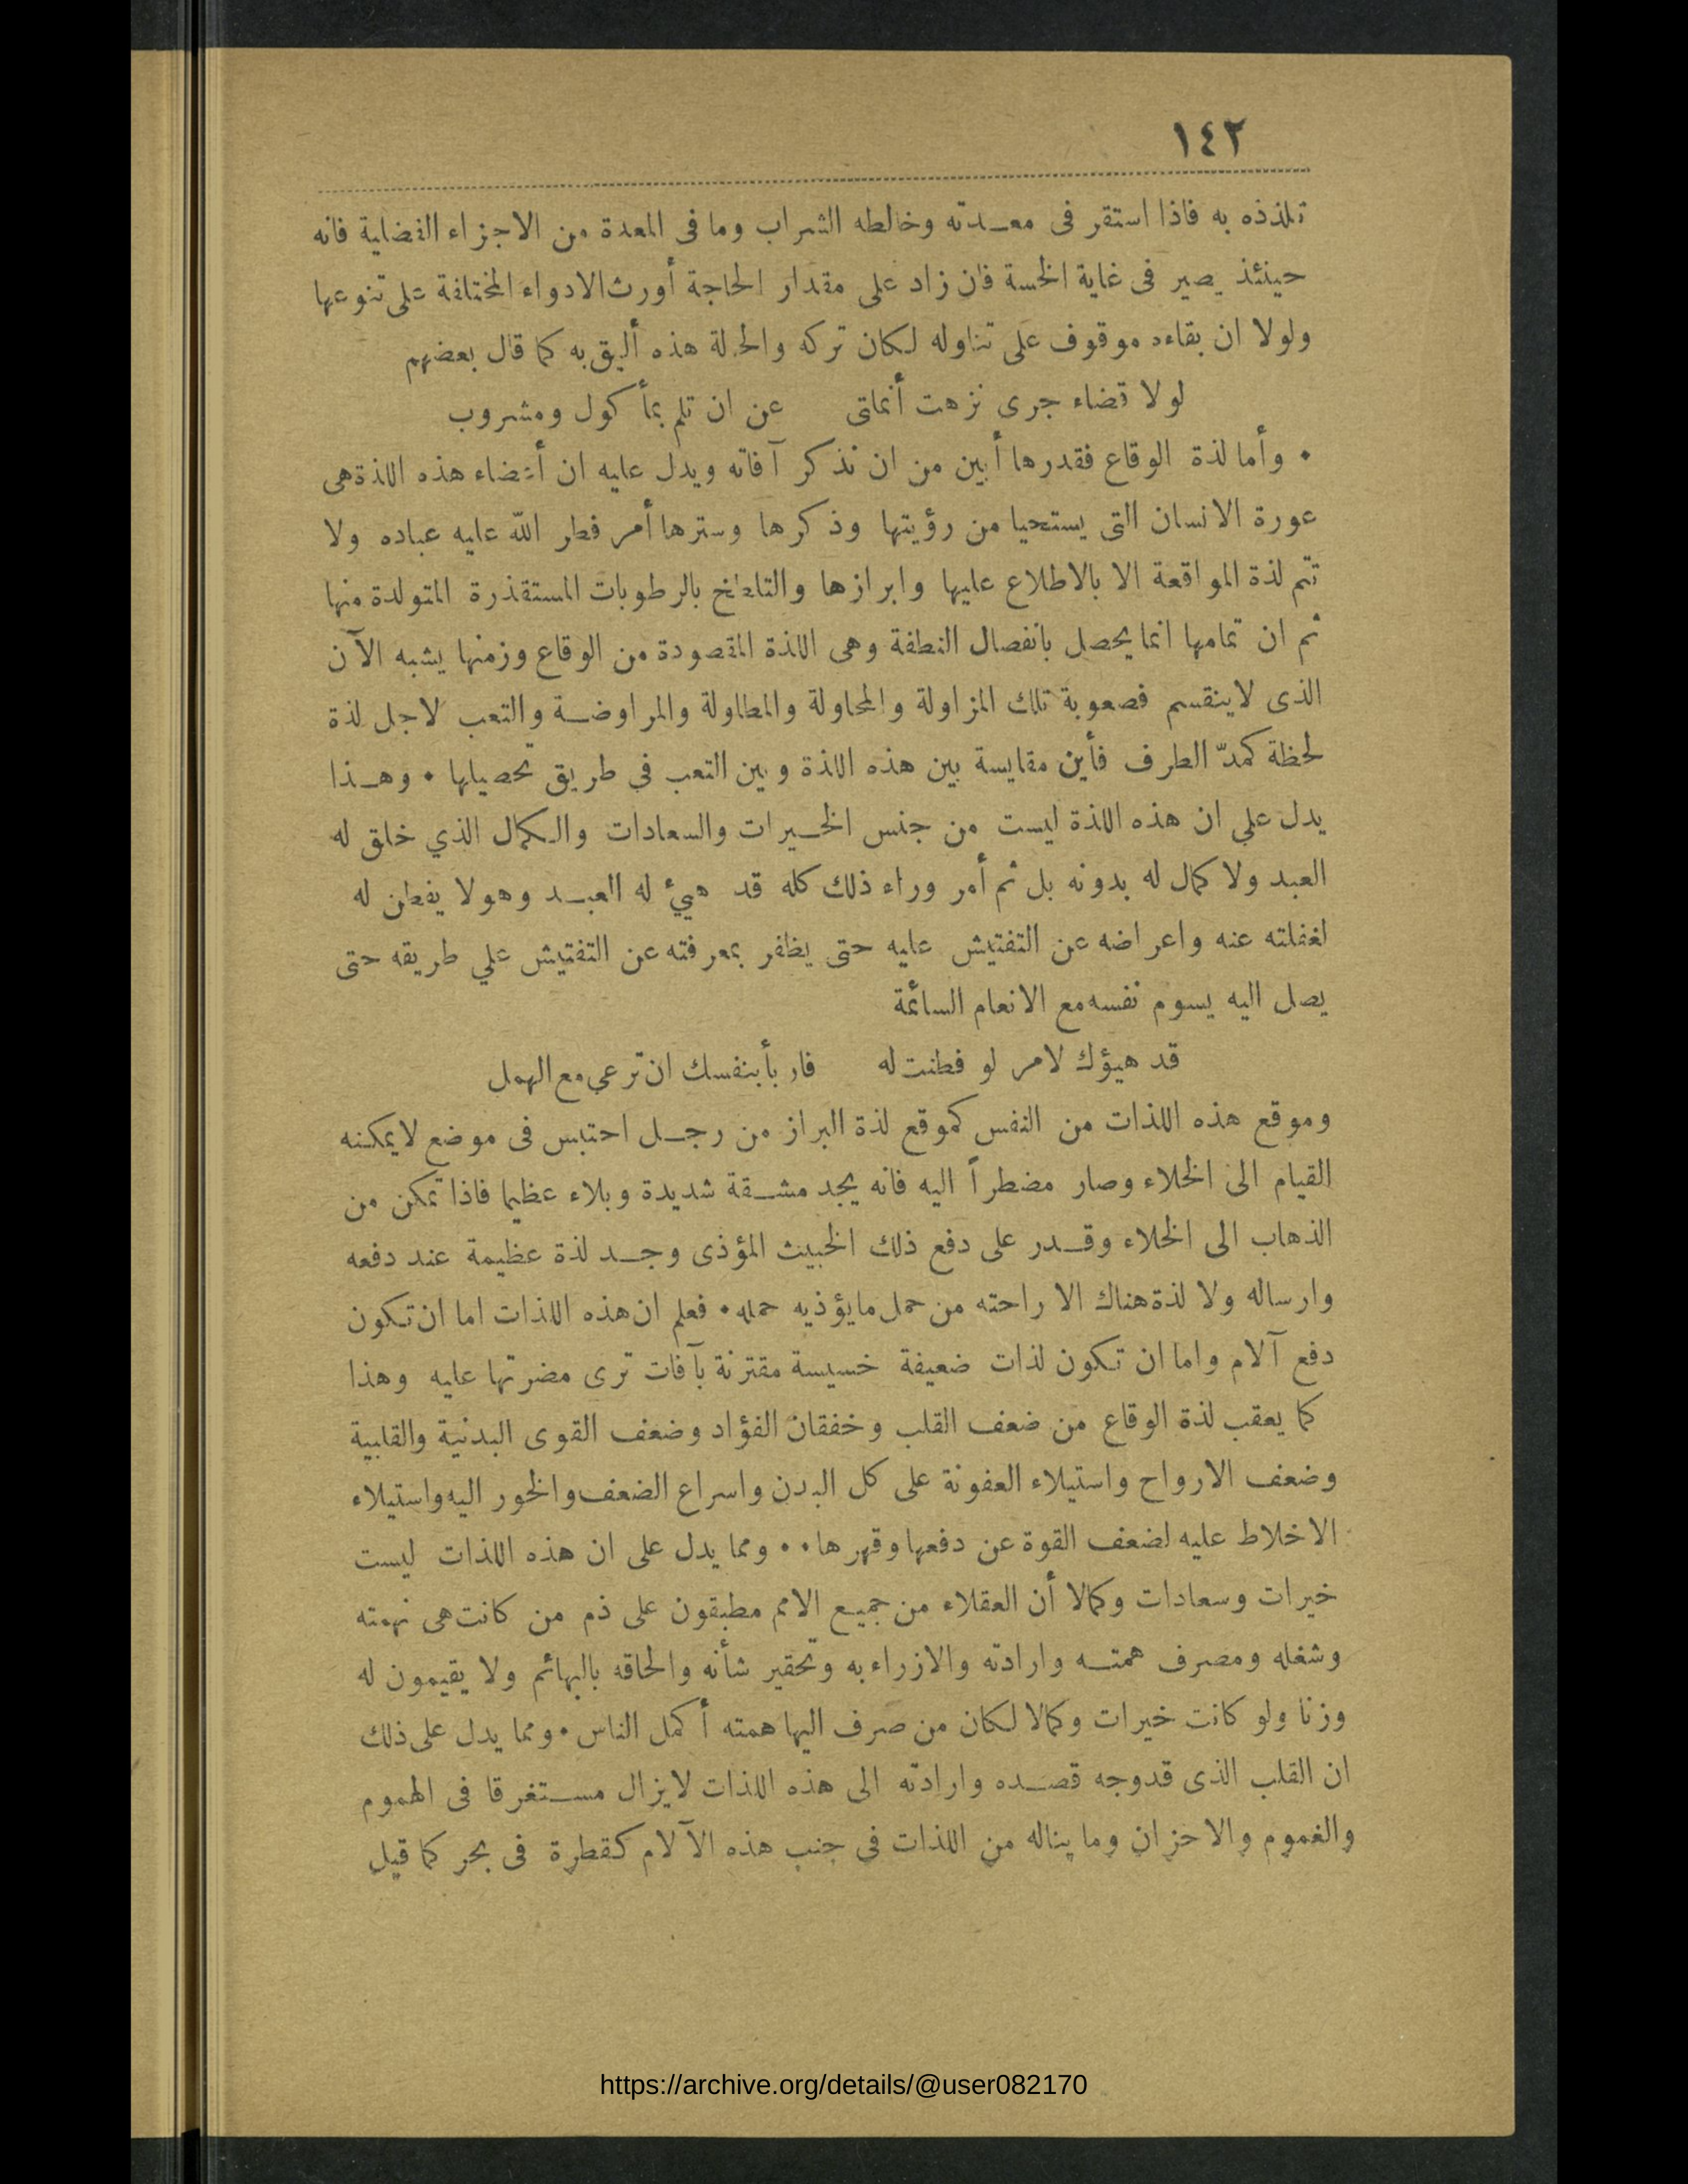 ١٤٢
تلذذه به فاذا استقر فى معـدته وخالطه الشراب وما فى المعدة من الاجزاء الفضلية فانه
حينئذ يصير فى غاية الخسة فان زاد على مقدار الحاجة أورث الادواء المختلفة على تنوعها
ولولا ان بقاءه موقوف على تناوله لكان تركه والحالة هذه أليق به كما قال بعضهم
لولا قضاء جرى نزهت أنملتى عن ان تلم بمأكول ومشروب
• وأما لذة الوقاع فقدرها أبين من ان نذكر آفاته ويدل عليه ان أعضاء هذه اللذة هى
عورة الانسان التى يستحيا من رؤيتها وذكرها وسترها أمر فطر الله عليه عباده ولا
تتم لذة المواقعة الا بالاطلاع عليها وابرازها والتلطخ بالرطوبات المستقذرة المتولدة منها
ثم ان تمامها انما يحصل بانفصال النطفة وهى اللذة المقصودة من الوقاع وزمنها يشبه الآن
الذى لاينقسم فصعوبة تلك المزاولة والمحاولة والمطاولة والمراوضـة والتعب لاجل لذة
لحظة كمدّ الطرف فأين مقايسة بين هذه اللذة وبين التعب في طريق تحصيلها • وهـذا
يدل علي ان هذه اللذة ليست من جنس الخـيرات والسعادات والكمال الذي خلق له
العبد ولا كمال له بدونه بل ثم أمر وراء ذلك كله قد هيئ له العبـد وهو لا يفطن له
لغفلته عنه واعراضه عن التفتيش عليه حتى يظفر بمعرفته عن التفتيش علي طريقه حتى
يصل اليه يسوم نفسه مع الانعام السائمة
قد هيؤك لامر لو فطنت له فاربأ بنفسك ان ترعي مع الهمل
وموقع هذه اللذات من النفس كموقع لذة البراز من رجـل احتبس فى موضع لايمكنه
القيام الى الخلاء وصار مضطراً اليه فانه يجد مشـقة شديدة وبلاء عظيما فاذا تمكن من
الذهاب الى الخلاء وقـدر على دفع ذلك الخبيث المؤذى وجـد لذة عظيمة عند دفعه
وارساله ولا لذة هناك الا راحته من حمل مايؤذيه حمله • فعلم ان هذه اللذات اما ان تكون
دفع آلام واما ان تكون لذات ضعيفة خسيسة مقترنة بآفات ترى مضرتها عليه وهذا
كما يعقب لذة الوقاع من ضعف القلب وخفقان الفؤاد وضعف القوى البدنية والقلبية
وضعف الارواح واستيلاء العفونة على كل البدن واسراع الضعف والخور اليه واستيلاء
الاخلاط عليه لضعف القوة عن دفعها وقهرها • • ومما يدل على ان هذه اللذات ليست
خيرات وسعادات وكمالا أن العقلاء من جميع الامم مطبقون على ذم من كانت هى نهمته
وشغله ومصرف همتـه وارادته والازراء به وتحقير شأنه والحاقه بالبهائم ولا يقيمون له
وزنا ولو كانت خيرات وكمالا لكان من صرف اليها همته أكمل الناس • ومما يدل على ذلك
ان القلب الذى قدوجه قصـده وارادته الى هذه اللذات لايزال مسـتغرقا فى الهموم
والغموم والاحزان وما يناله من اللذات في جنب هذه الآلام كقطرة فى بحر كما قيل
https://archive.org/details/@user082170